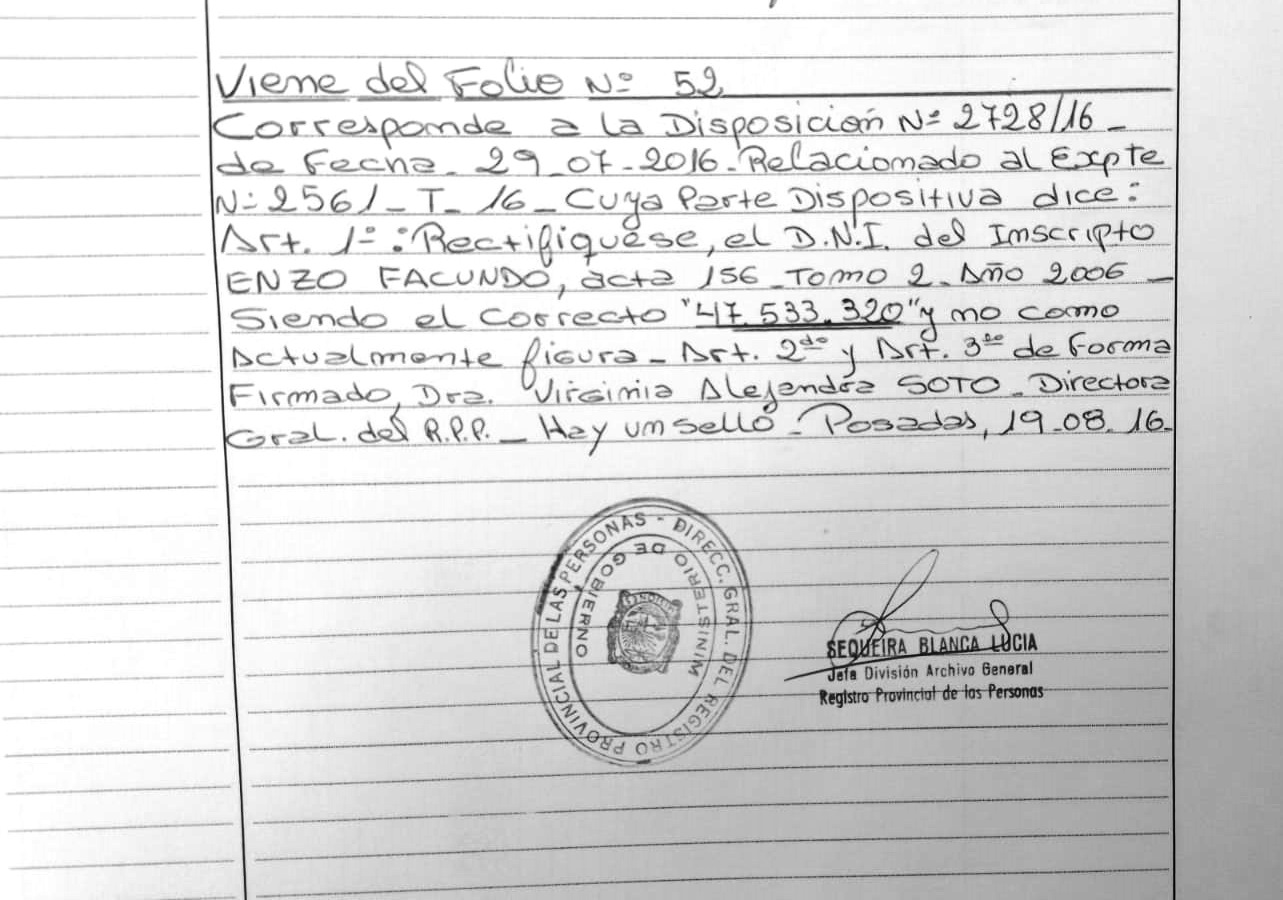 Viene del Folio Nº 52
Corresponde a la Disposición Nº 2728/16 _
de Fecha _ 29_07_2016_ Relacionado al Expte
Nº 2561_T_16_ Cuya Parte Dispositiva dice:
Art. 1º: Rectifiquese, el D.N.I. del Inscripto
ENZO FACUNDO, acta 156_Tomo 2_Año 2006 _
Siendo el Correcto "47.533.320" y no como
Actualmente figura_ Art. 2do y Art. 3ro de Forma
Firmado, Dra. Virginia Alejandra SOTO_ Directora
Gral. del R.P.P. _ Hay un sello_ Posadas, 19.08.16_
DIRECC. GRAL. DEL REGISTRO PROVINCIAL DE LAS PERSONAS -
MINISTERIO DE GOBIERNO
SEQUEIRA BLANCA LUCIA
Jefa División Archivo General
Registro Provincial de las Personas